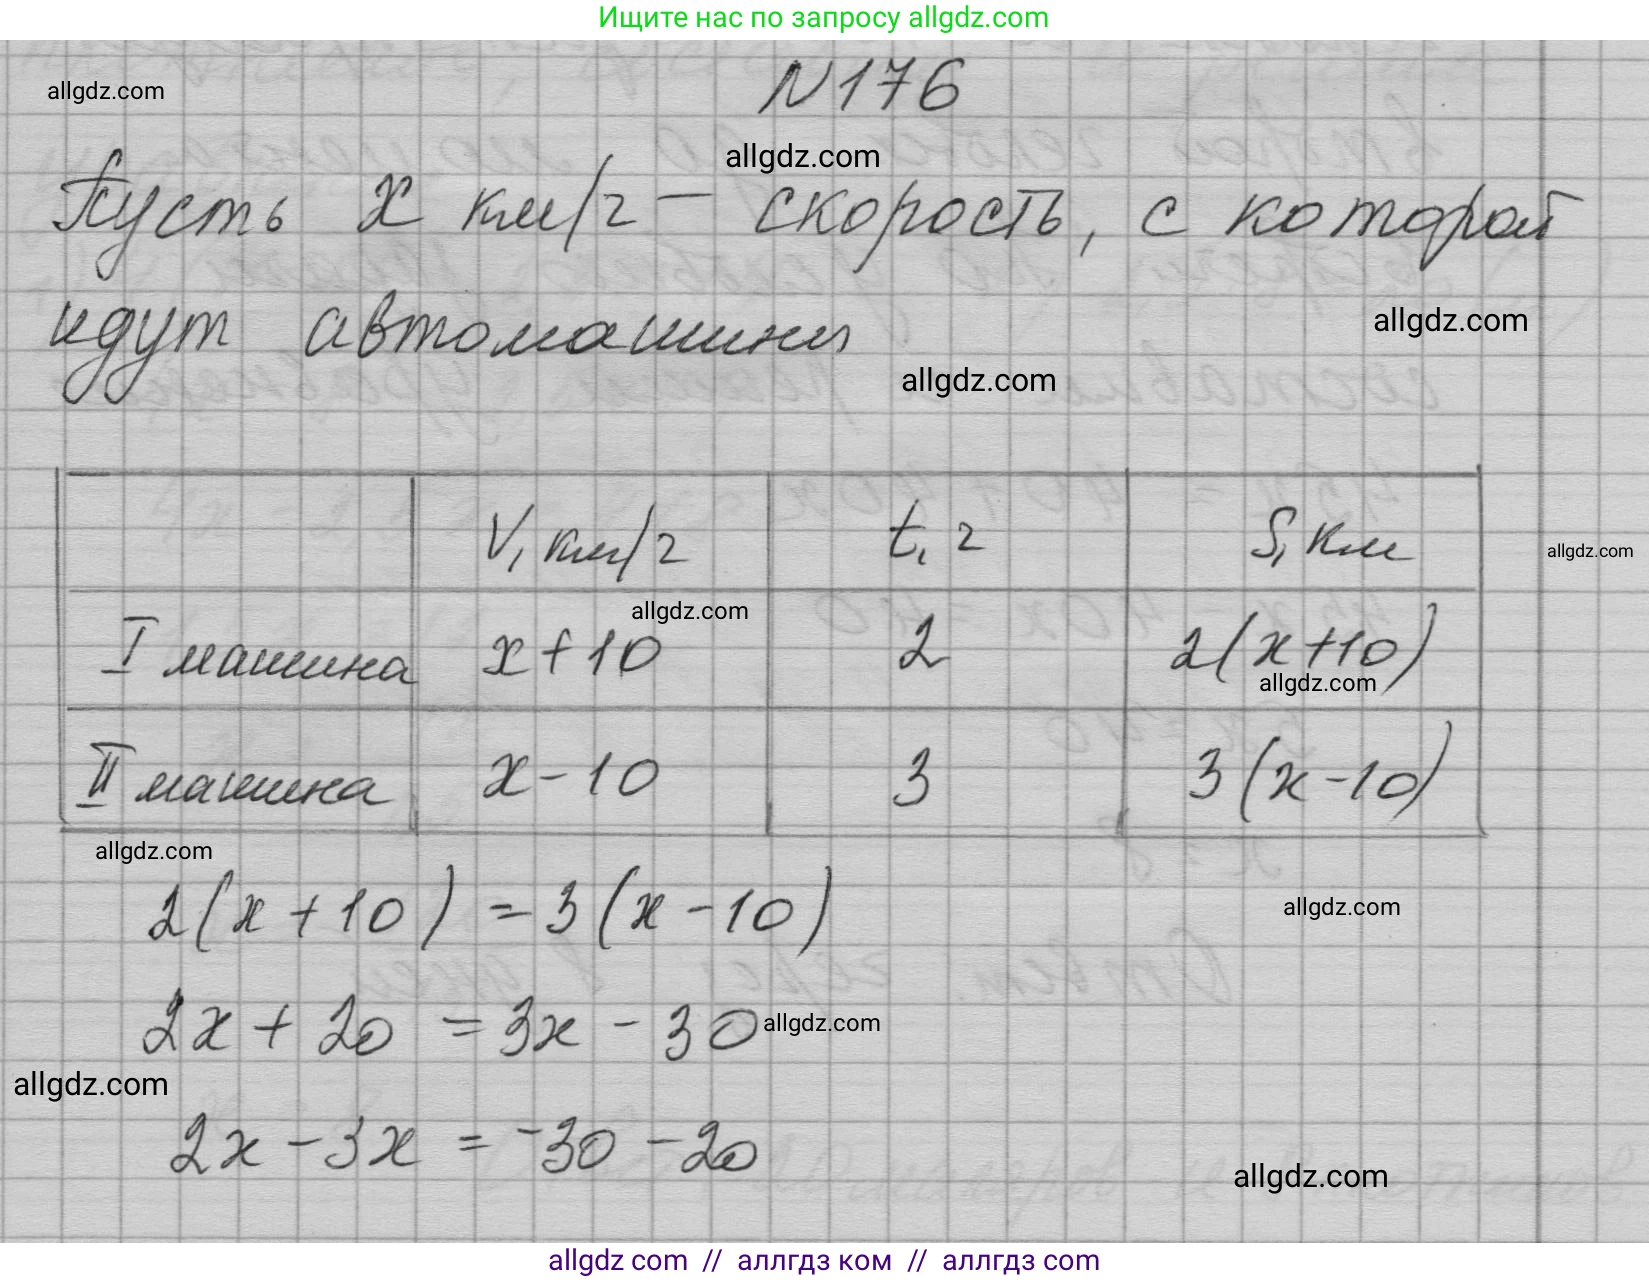 Ищите нас по запросу allgdz.com
N176
allgdz.com
allgdz.com
Пусть x км/ч — скорость, с которой
идут автомашины
allgdz.com
allgdz.com
V, км/ч t, ч S, км
allgdz.com
allgdz.com
I машина x+10 2 2(x+10)
allgdz.com
II машина x-10 3 3(x-10)
allgdz.com
2(x+10) = 3(x-10)
allgdz.com
2x + 20 = 3x - 30
allgdz.com
allgdz.com
2x - 3x = -30 - 20
allgdz.com
allgdz com // аллгдз ком // аллгдз com